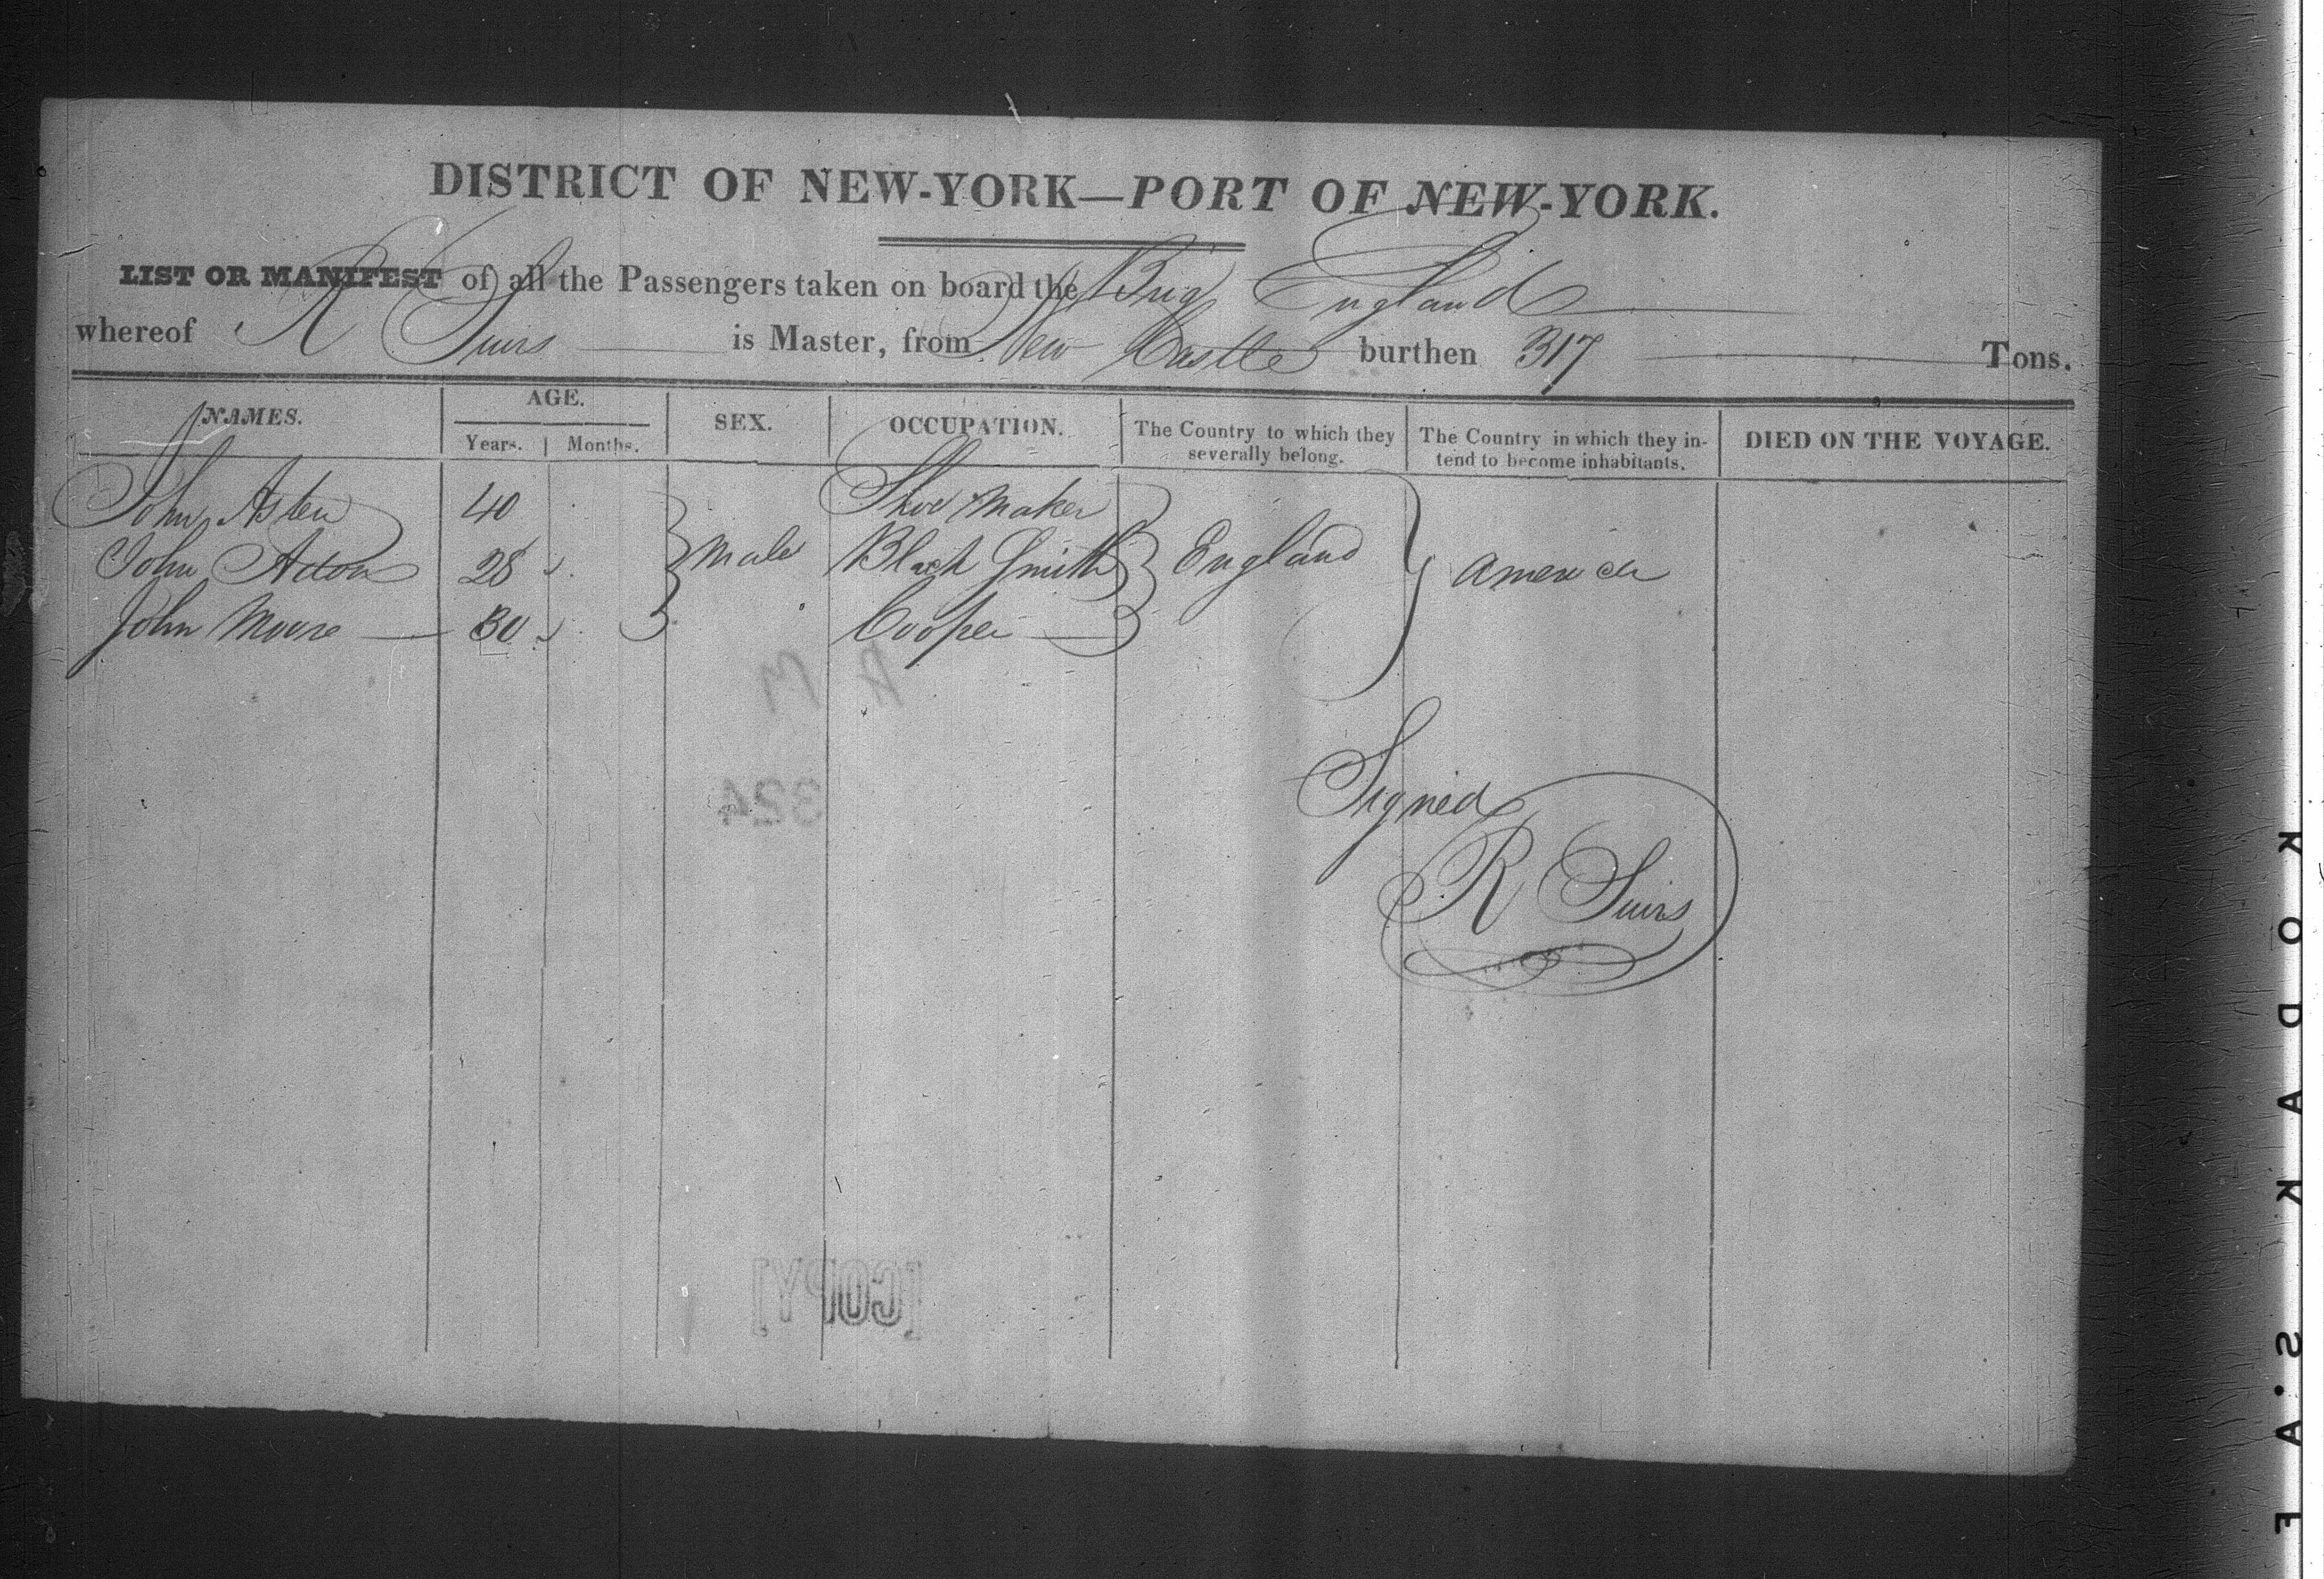 DISTRICT OF NEW-YORK—PORT OF NEW-YORK.
LIST OR MANIFEST of all the Passengers taken on board the Brig England
whereof R is Master, from New Castle burthen 317 Tons.
NAMES. AGE. SEX. OCCUPATION. The Country to which they severally belong. The Country in which they in-tend to become inhabitants. DIED ON THE VOYAGE.
Years. Months.
John 40 Shoe Maker
John 28 Male Black Smith England America
John Moore 30 Cooper
A M
324
Signed
R
[COPY]
KODAK S.AF